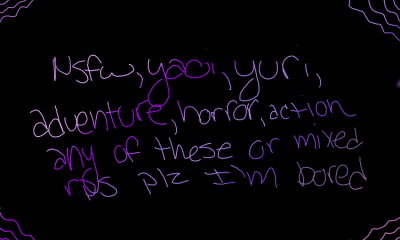 Nsfw, yaoi, yuri,
adventure, horror, action
any of these or mixed
rps plz I'm bored